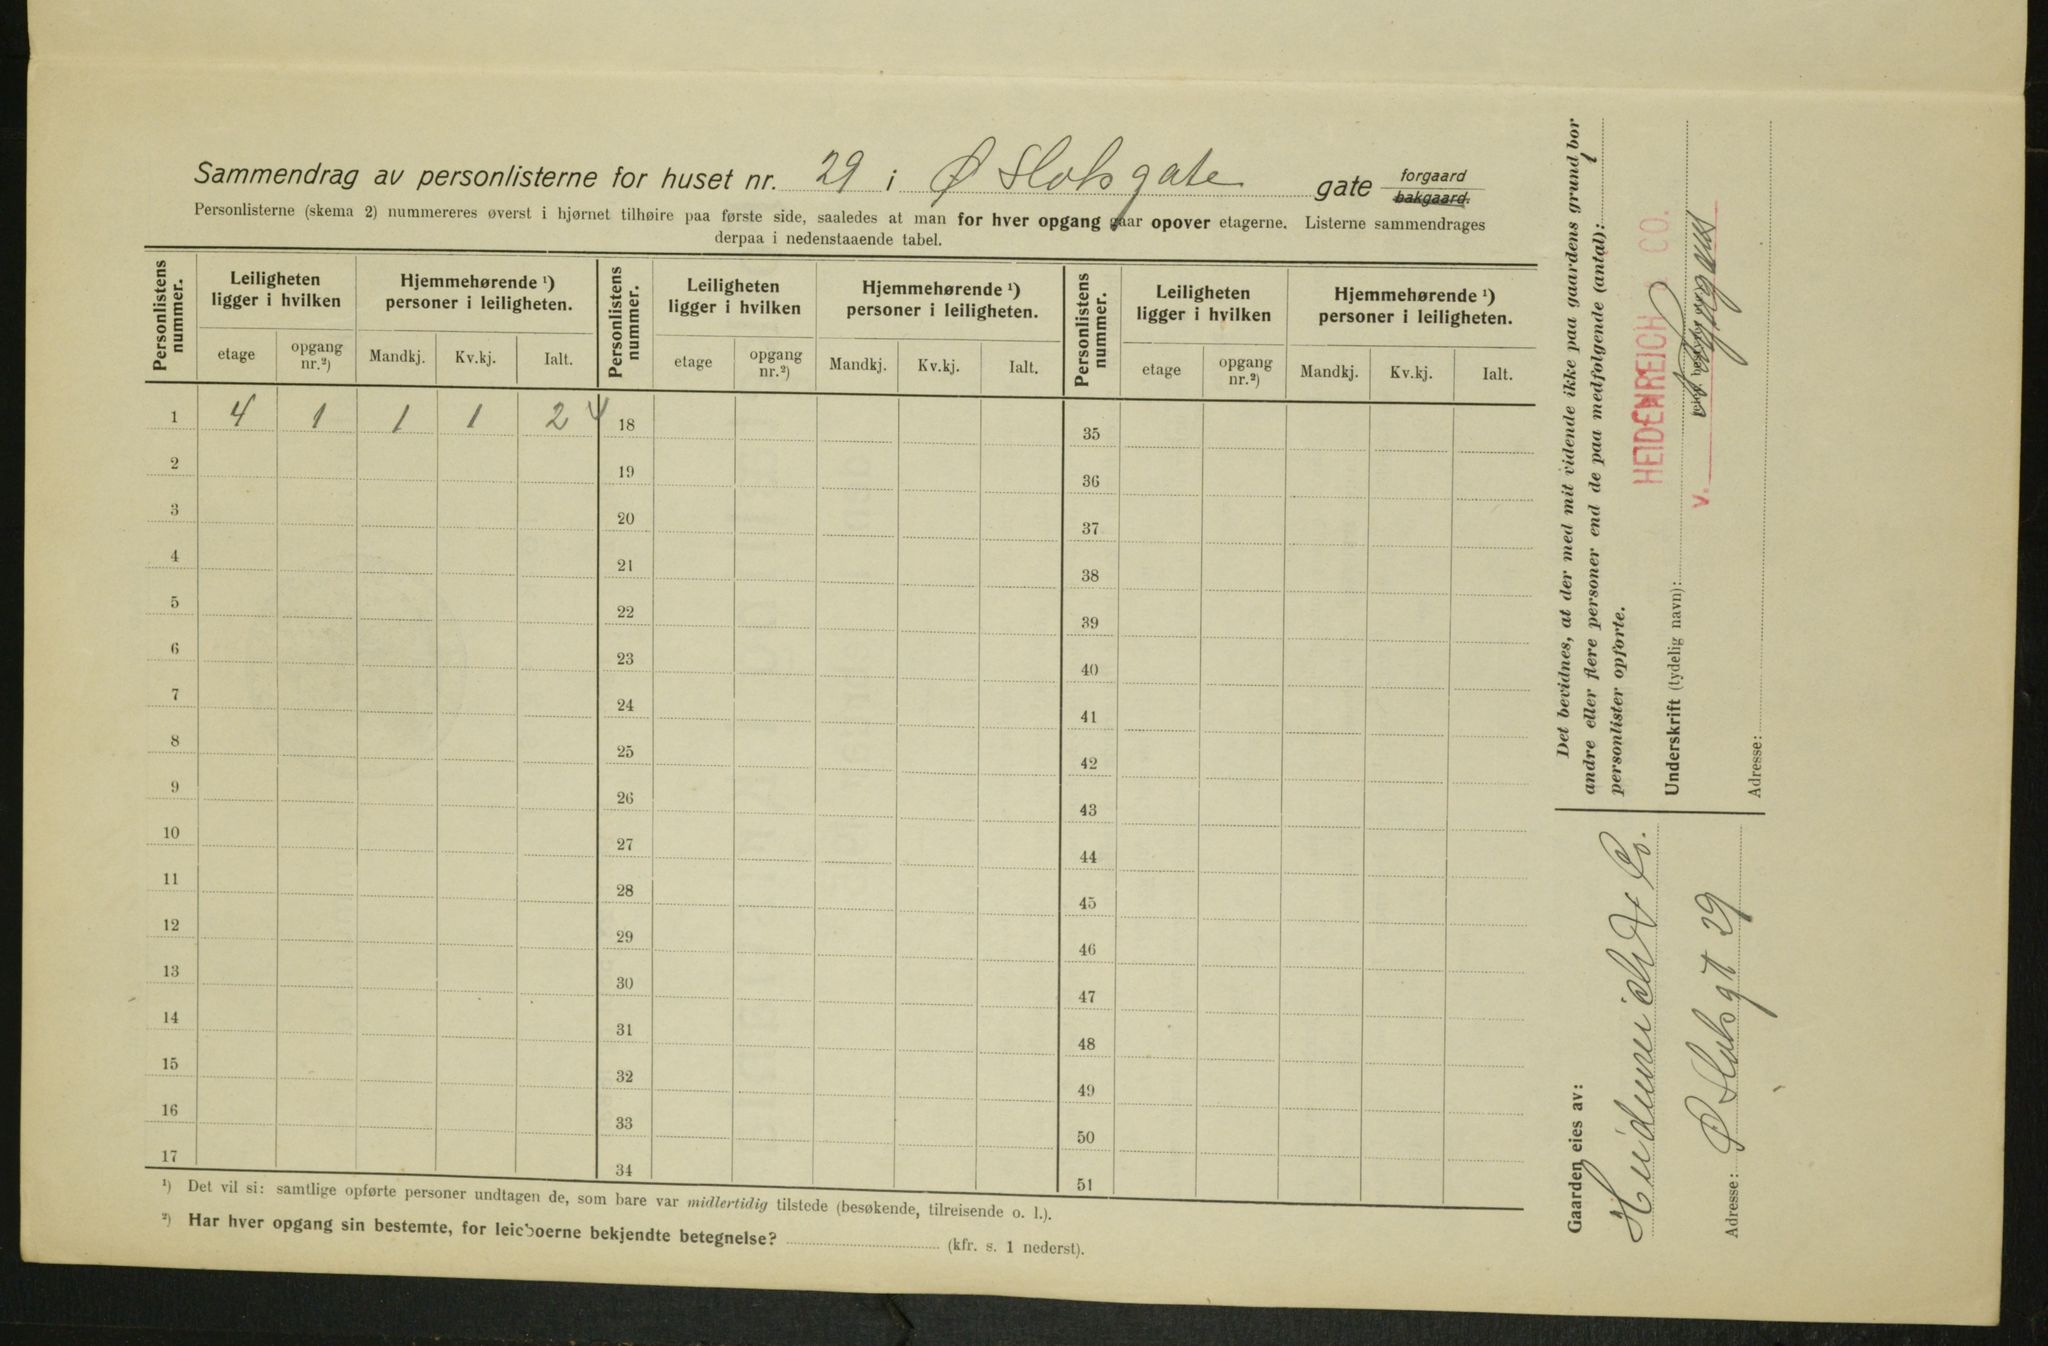 Sammendrag av personlisterne for huset nr. 29 i Ø Slots gate gate forgaard bakgaard.
Personlisterne (skema 2) nummereres øverst i hjørnet tilhøire paa første side, saaledes at man for hver opgang gaar opover etagerne. Listerne sammendrages
derpaa i nedenstaaende tabel.
Personlistens nummer. Leiligheten ligger i hvilken Hjemmehørende ¹) personer i leiligheten. Personlistens nummer. Leiligheten ligger i hvilken Hjemmehørende ¹) personer i leiligheten. Personlistens nummer. Leiligheten ligger i hvilken Hjemmehørende ¹) personer i leiligheten.
etage opgang nr.²) Mandkj. Kv.kj. Ialt. etage opgang nr.²) Mandkj. Kv.kj. Ialt. etage opgang nr.²) Mandkj. Kv.kj. Ialt.
1 4 1 1 1 2 4 18 35
2 19 36
3 20 37
4 21 38
5 22 39
6 23 40
7 24 41
8 25 42
9 26 43
10 27 44
11 28 45
12 29 46
13 30 47
14 31 48
15 32 49
16 33 50
17 34 51
¹) Det vil si: samtlige opførte personer undtagen de, som bare var midlertidig tilstede (besøkende, tilreisende o. l.).
²) Har hver opgang sin bestemte, for leieboerne bekjendte betegnelse? (kfr. s. 1 nederst).
Gaarden eies av:
Heidenreich & Co.
Adresse: Ø Slots gt 29
Det bevidnes, at der med mit vidende ikke paa gaardens grund bor
andre eller flere personer end de paa medfølgende (antal): 1
personlister opførte.
HEIDENREICH & CO.
Underskrift (tydelig navn):
v.
Adresse: